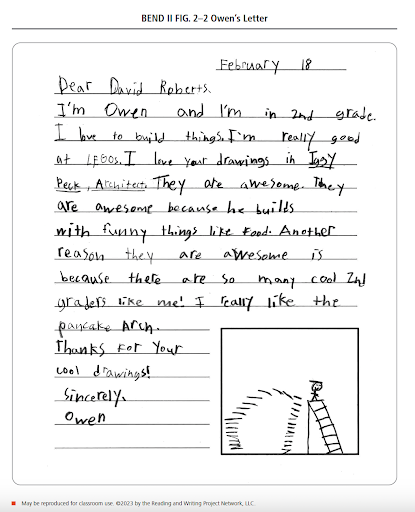 BEND II FIG. 2–2 Owen's Letter
February 18
Dear David Roberts.
I'm Owen and I'm in 2nd grade.
I love to build things. I'm really good
at LEGOs. I love your drawings in Iggy
Peck, Architect. They are awesome. They
are awesome because he builds
with funny things like food. Another
reason they are awesome is
because there are so many cool 2nd
graders like me! I really like the
pancake Arch.
Thanks for Your
cool drawings!
Sincerely,
Owen
May be reproduced for classroom use. ©2023 by the Reading and Writing Project Network, LLC.